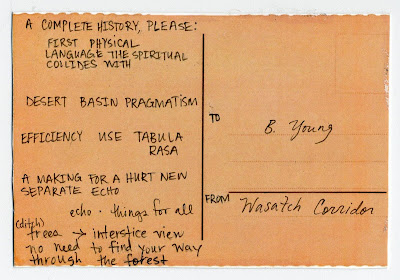 A COMPLETE HISTORY, PLEASE:
FIRST PHYSICAL
LANGUAGE THE SPIRITUAL
COLLIDES WITH
DESERT BASIN PRAGMATISM
EFFICIENCY USE TABULA
RASA
A MAKING FOR A HURT NEW
SEPARATE ECHO
echo · things for all
(ditch)
trees → interstice view
no need to find your way
through the forest
TO
B. Young
FROM
Wasatch Corridor